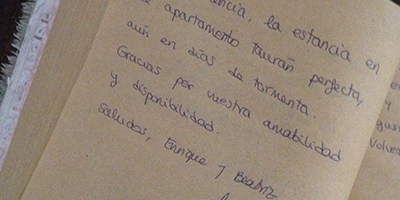 ncia, la estancia en
apartamento Taurañ perfecta,
aún en días de tormenta.
Gracias por vuestra amabilidad
y disponibilidad.
Saludos, Enrique y Beatriz
y
gus
Volver